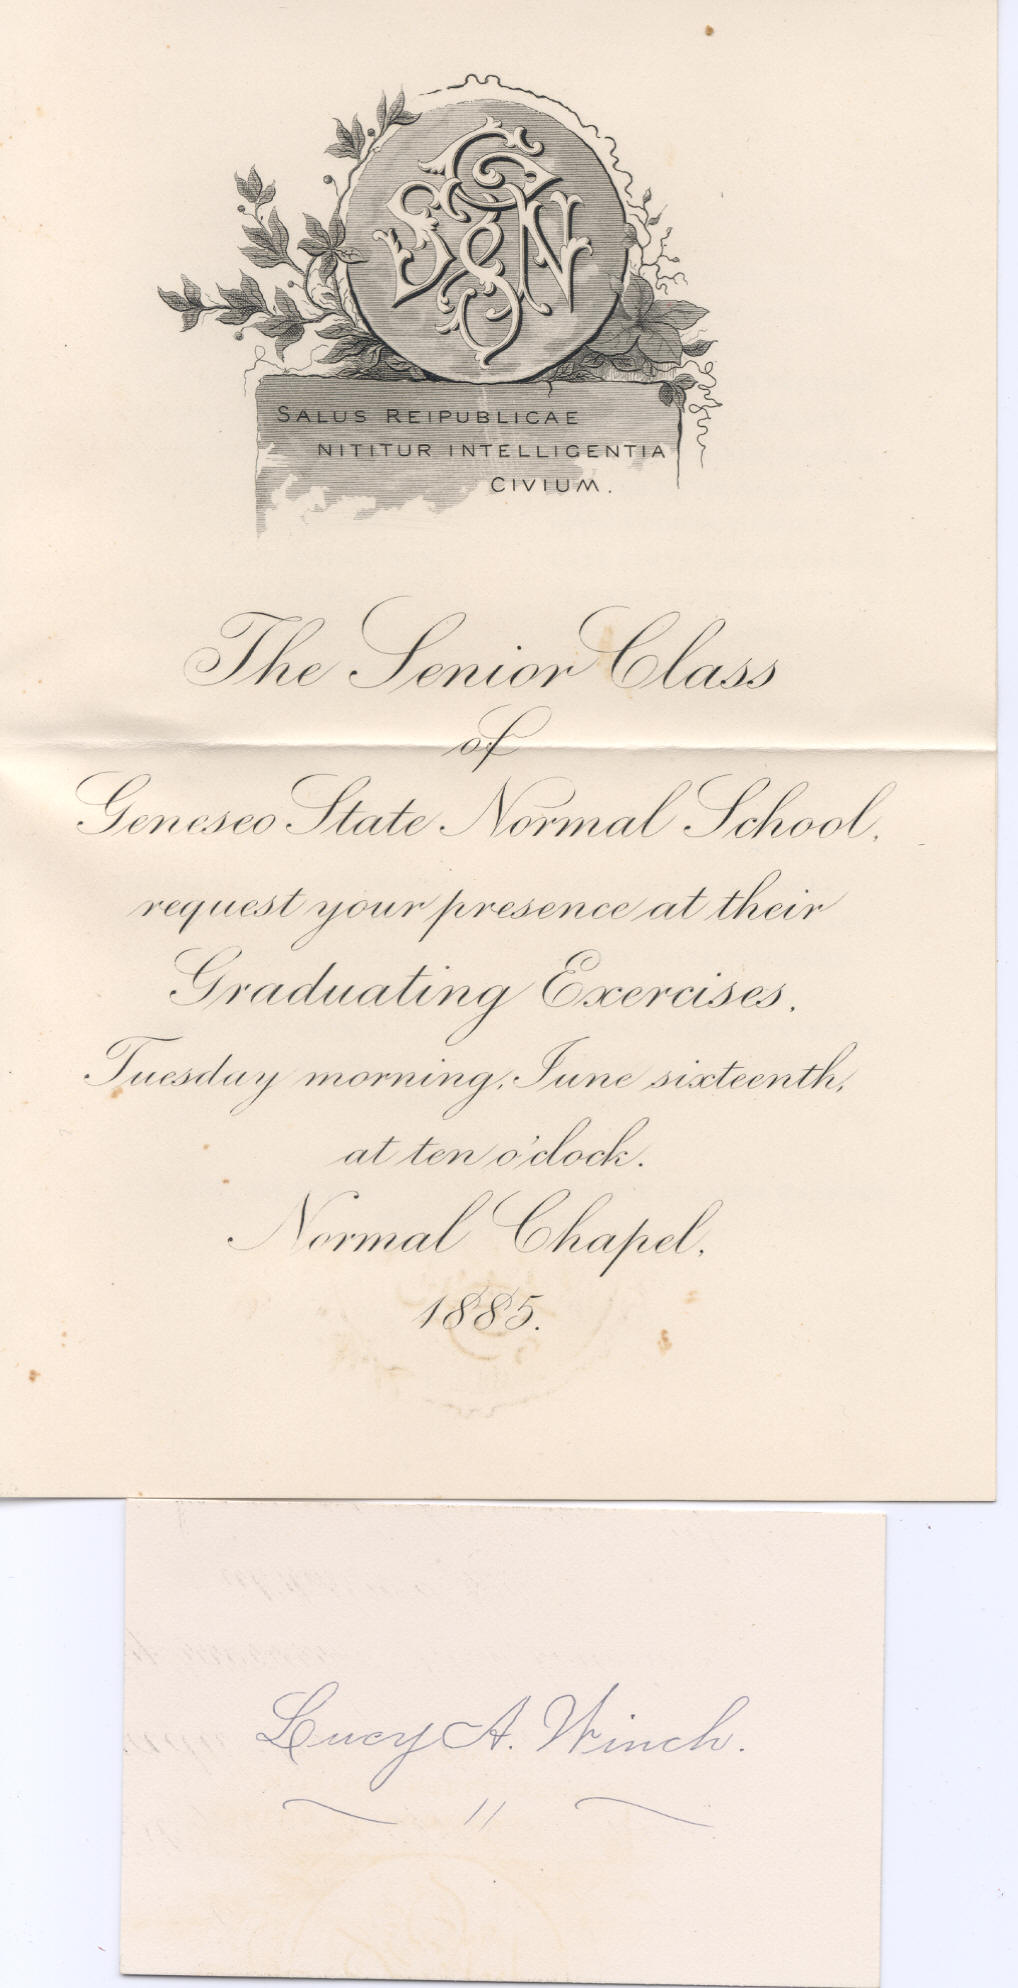 SALUS REIPUBLICAE
NITITUR INTELLIGENTIA
CIVIUM.
The Senior Class
of
Geneseo State Normal School,
request your presence at their
Graduating Exercises,
Tuesday morning, June sixteenth,
at ten o'clock.
Normal Chapel,
1885.
Lucy A. Winch.